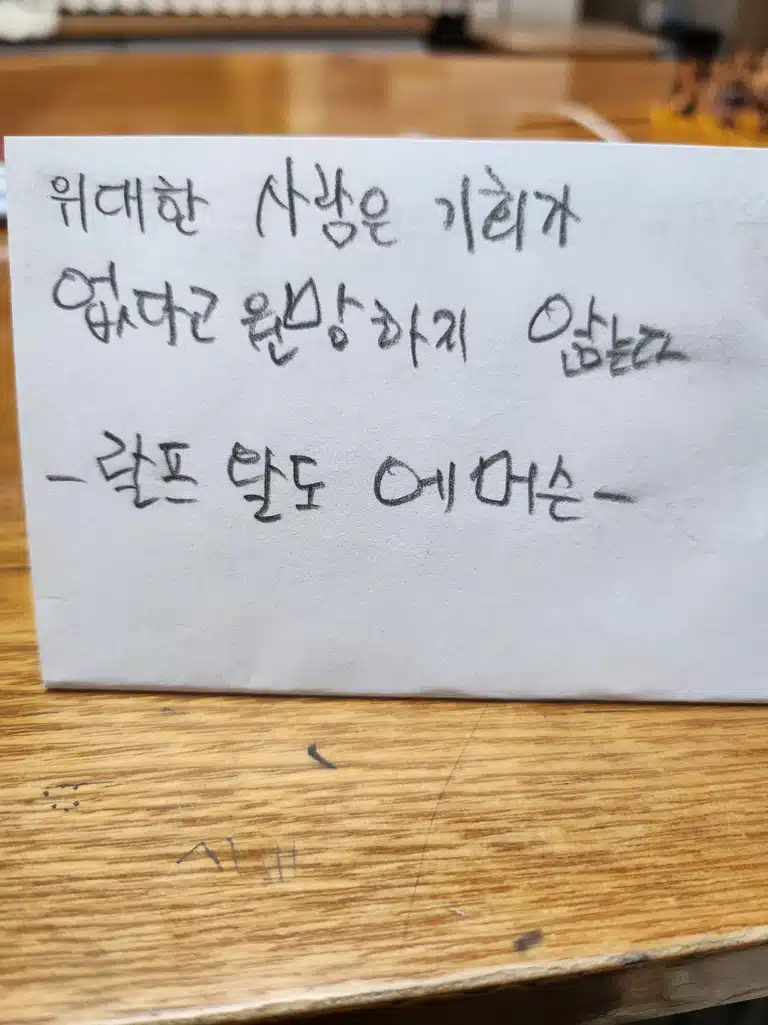 위대한 사람은 기회가
없다고 원망하지 않는다
- 랄프 왈도 에머슨 -